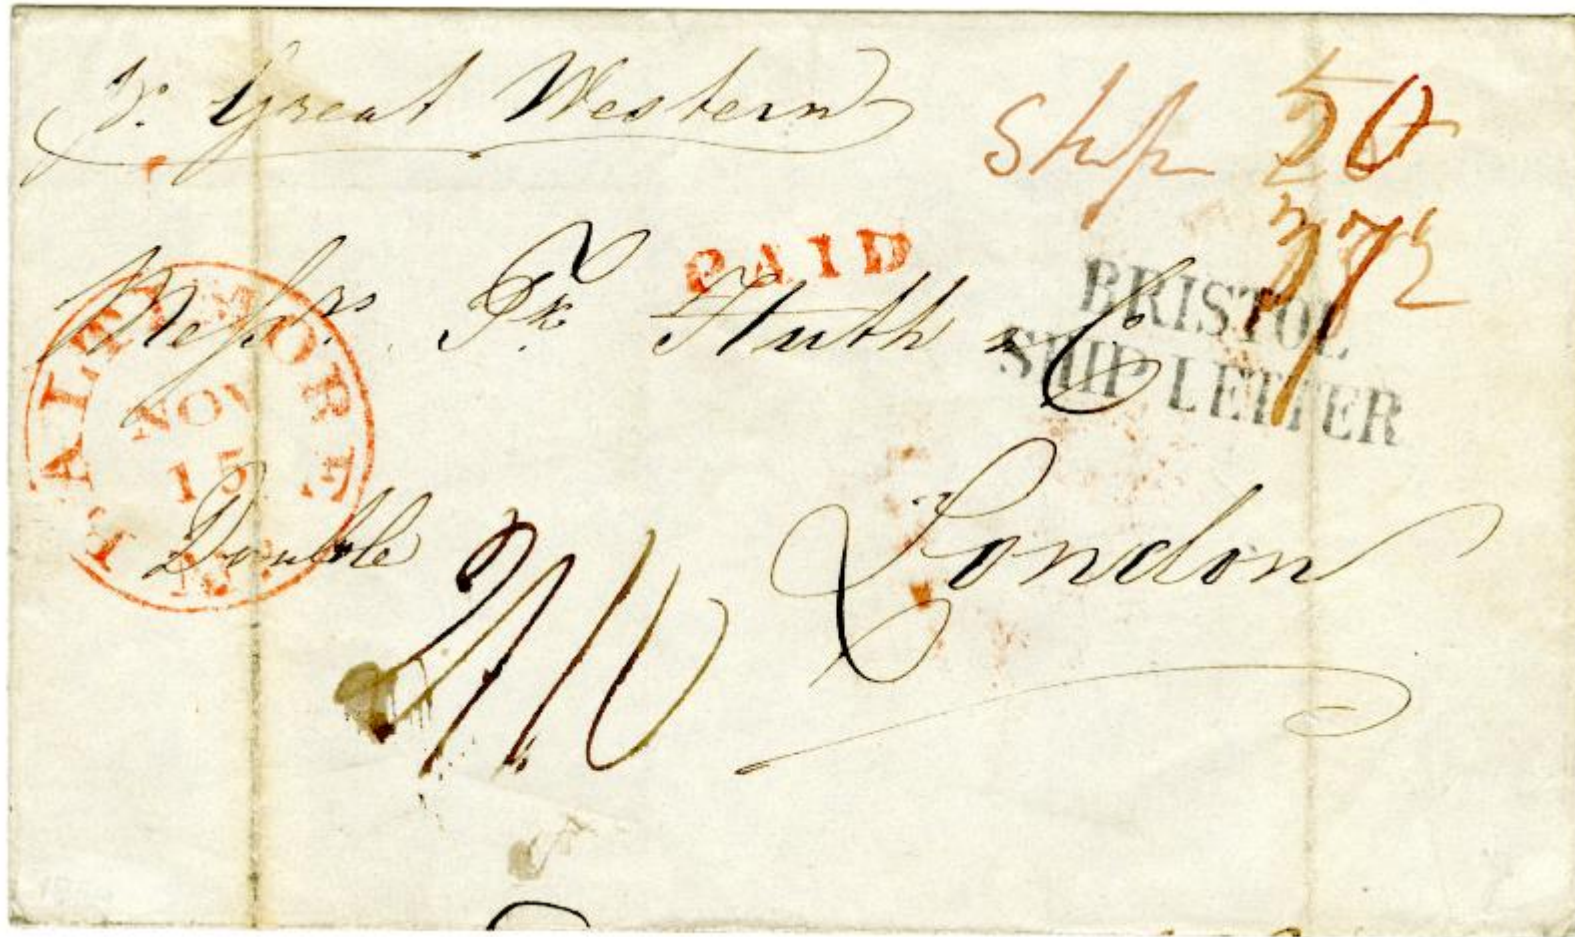 pr. Great Western
Ship 50
37½
PAID
Messrs. Fk. Huth & C
BRISTOL
SHIP LETTER
BALTIMORE
NOV
15
Md.
Double
London